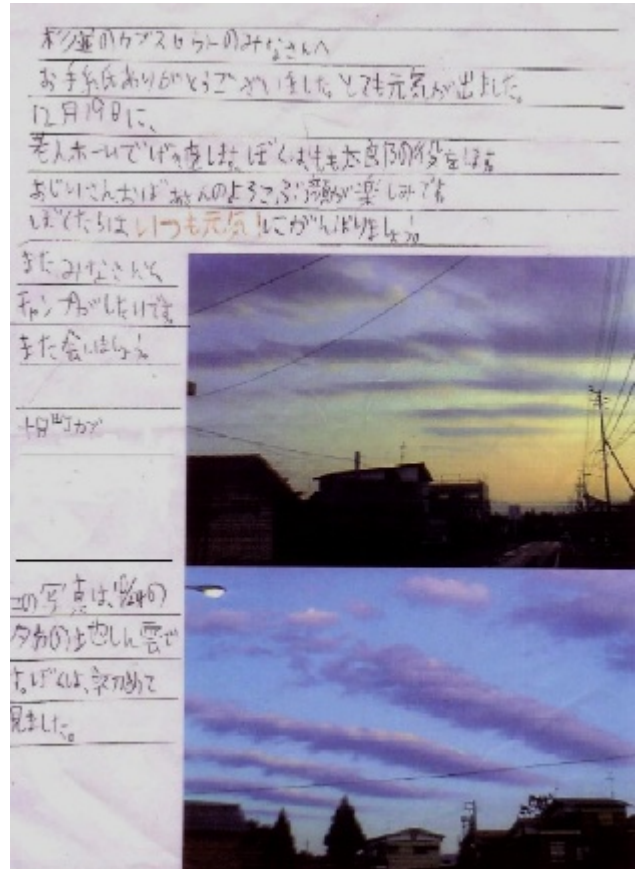 杉並のカブスカウトのみなさんへ
お手紙ありがとうございました。とても元気が出ました。
12月19日に、
老人ホームでげきをします。ぼくは、もも太郎の役をします
おじいさんおばあさんのよろこぶ顔が楽しみです
ぼくたちは、いつも元気!にがんばりましょう。
またみなさんと
キャンプがしたいです。
また会いましょう。
十日町カブ
この写真は、10/24の
夕方の地しん雲で
す。ぼくは、初めて
見ました。